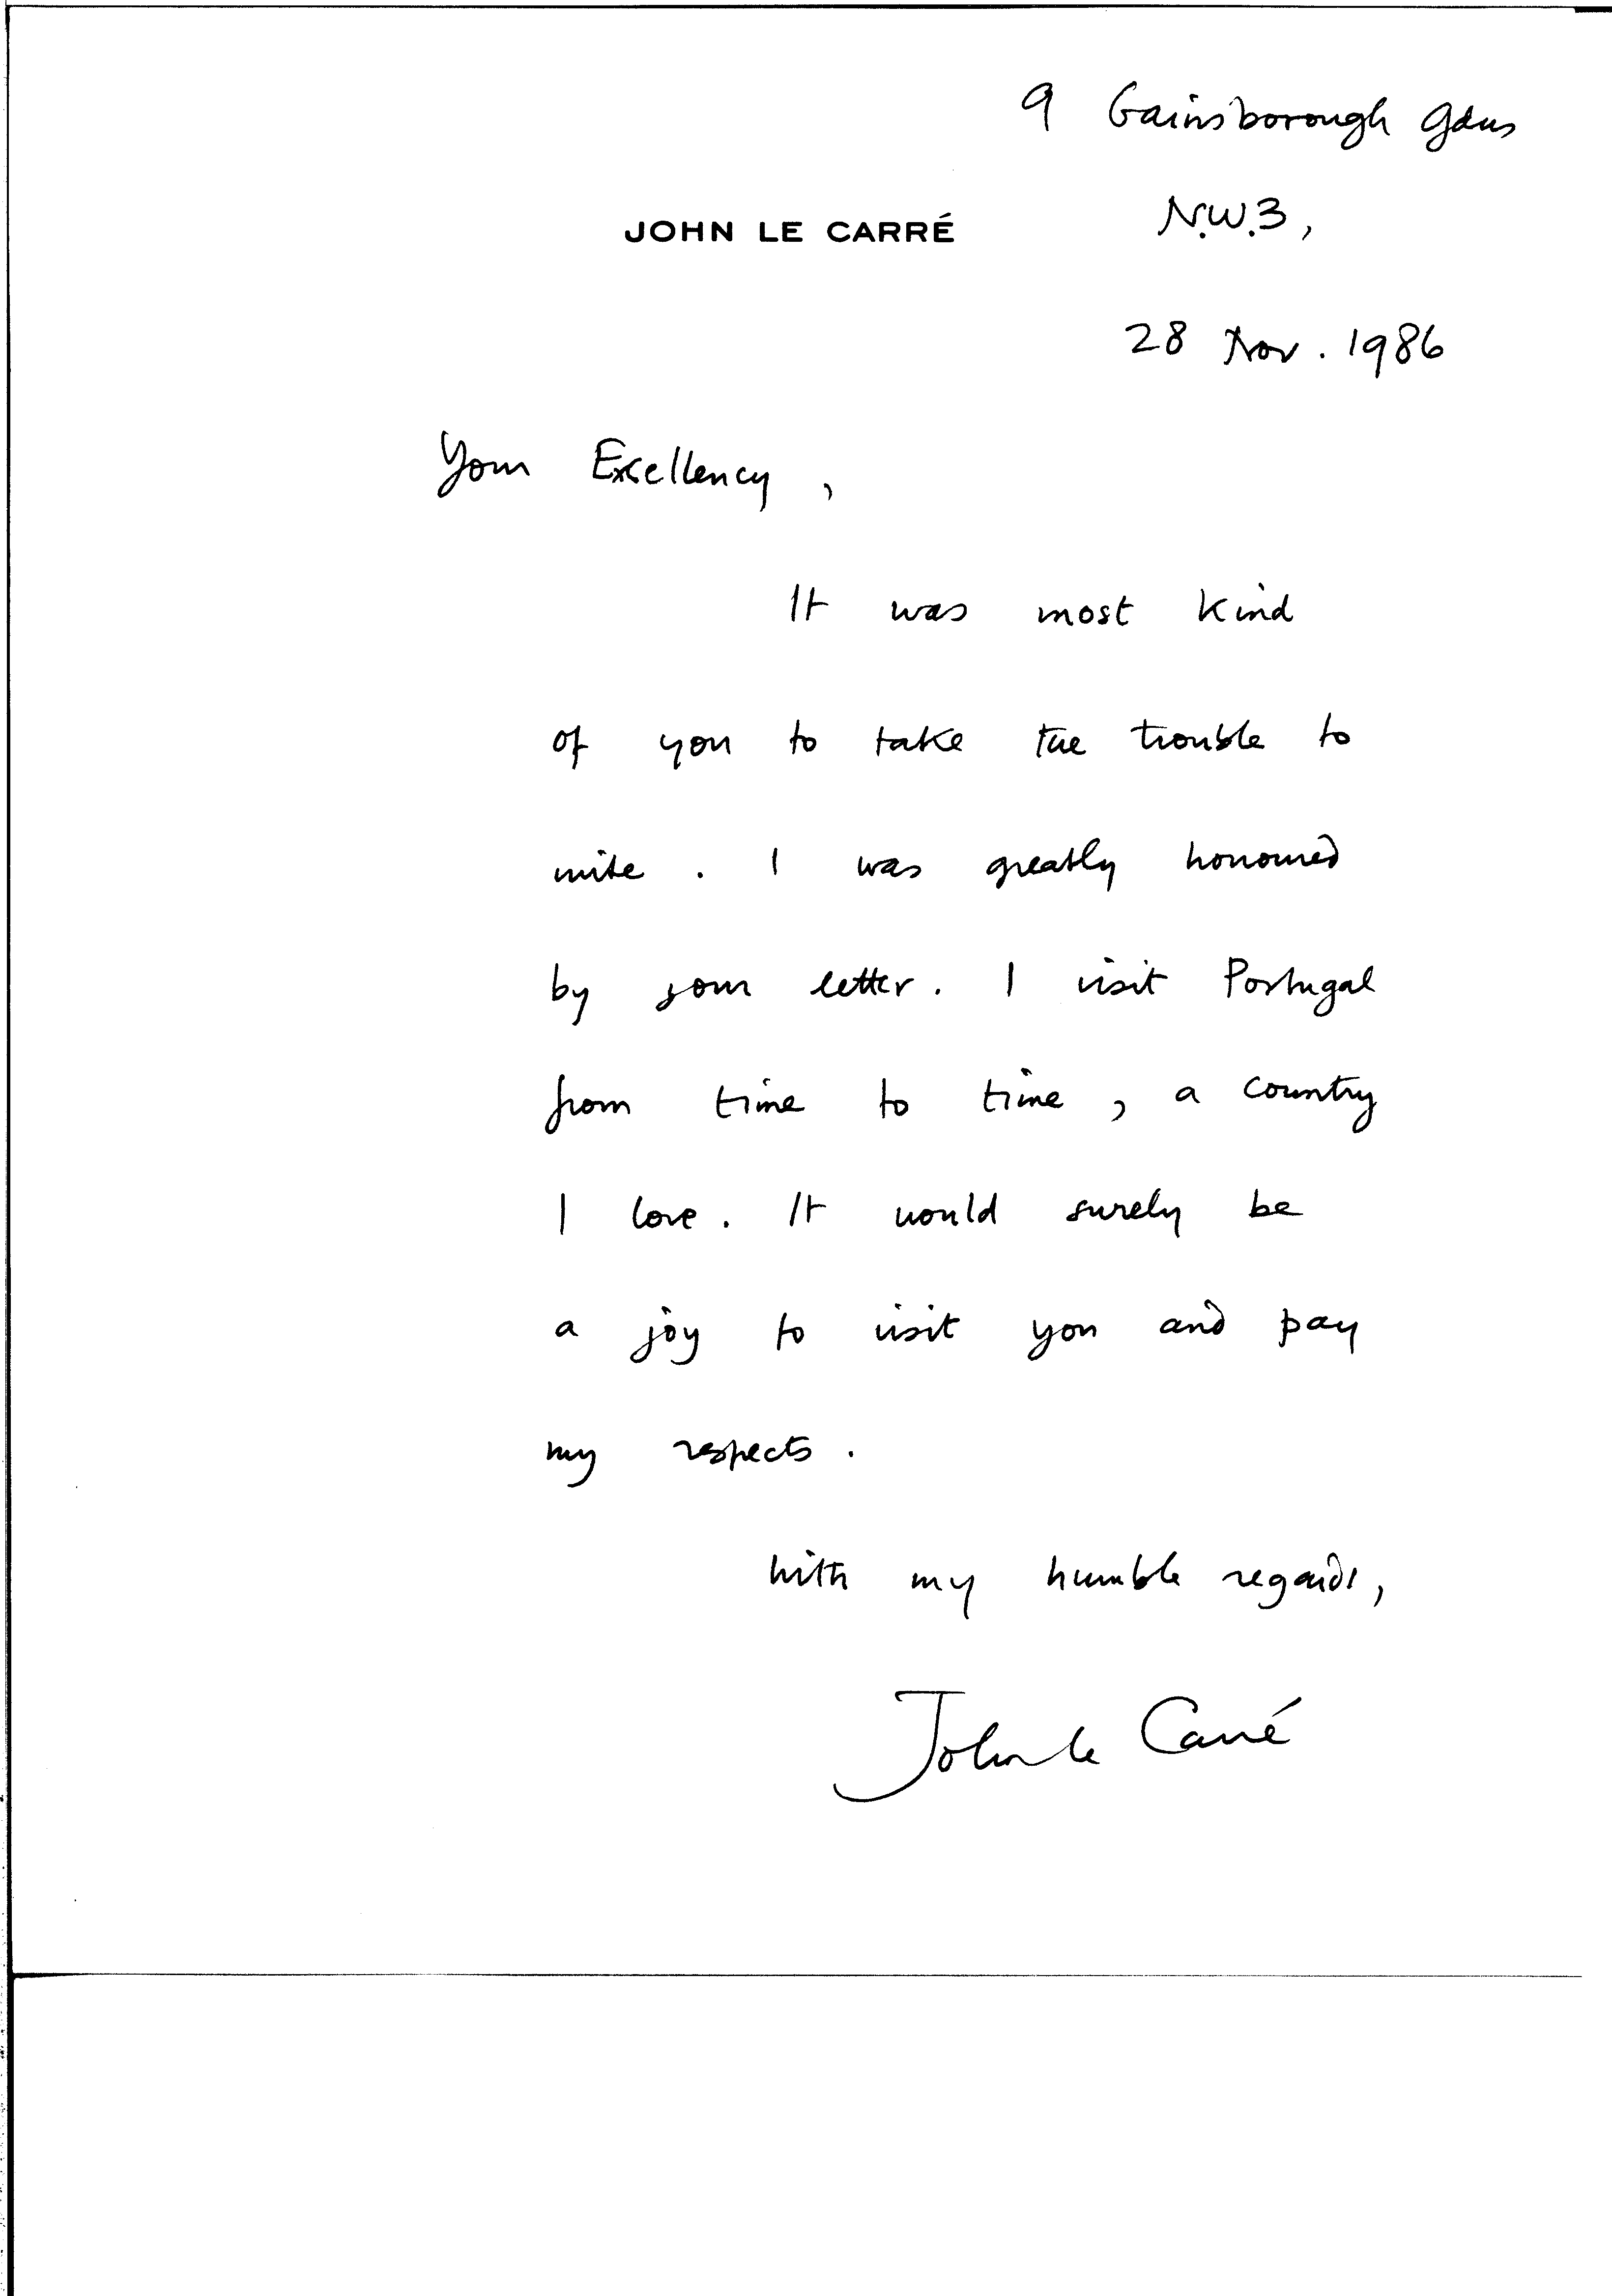 9 Gainsborough Gdns
JOHN LE CARRÉ
N.W.3,
28 Nov. 1986
Your Excellency,
It was most kind
of you to take the trouble to
write. I was greatly honoured
by your letter. I visit Portugal
from time to time, a country
I love. It would surely be
a joy to visit you and pay
my respects.
With my humble regards,
John le Carré